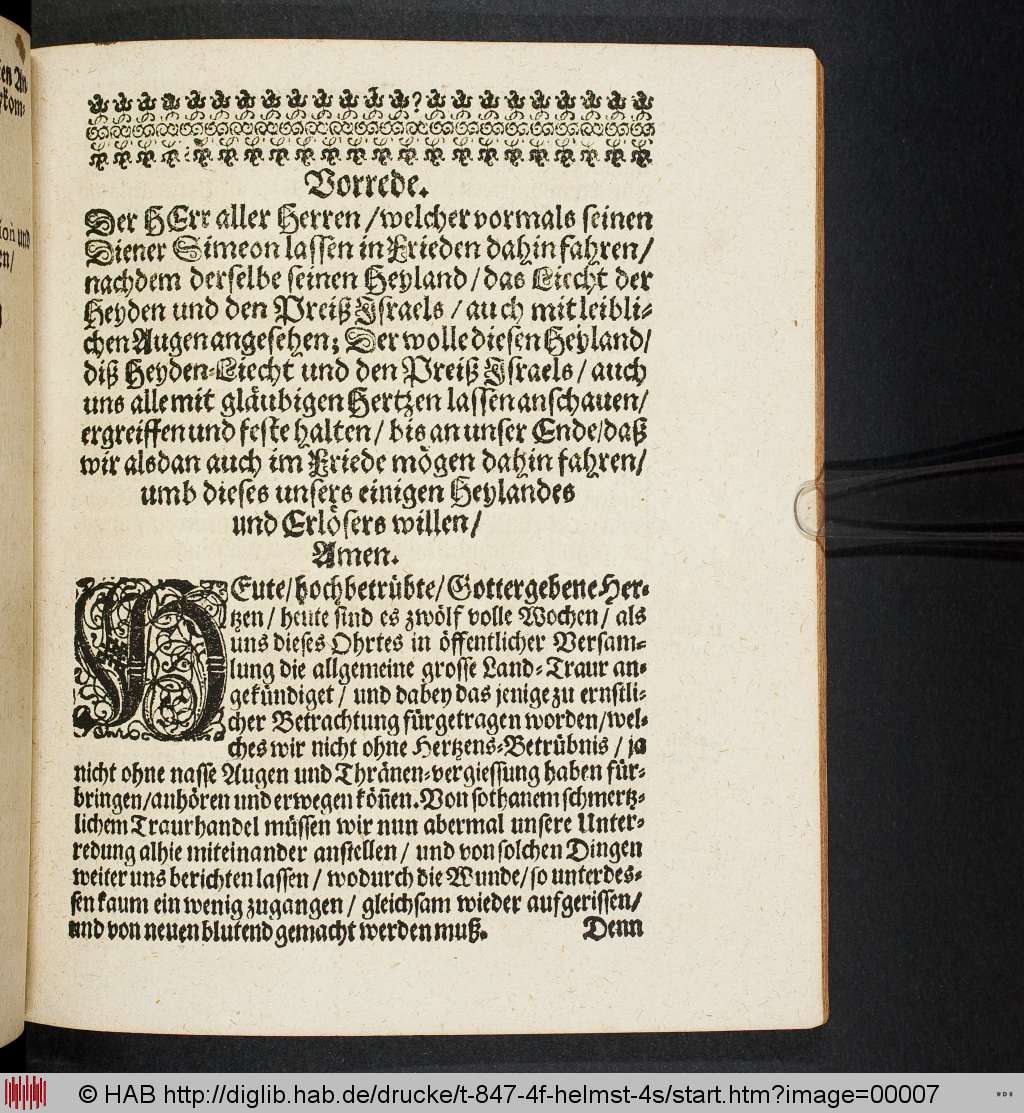 Vorrede.
Der HErr aller Herren / welcher vormals seinen
Diener Simeon lassen in Frieden dahin fahren /
nachdem derselbe seinen Heyland / das Liecht der
Heyden und den Preiß Israels / auch mit leibli-
chen Augen angesehen; Der wolle diesen Heyland /
diß Heyden-Liecht und den Preiß Israels / auch
uns alle mit gläubigen Hertzen lassen anschauen /
ergreiffen und feste halten / bis an unser Ende / daß
wir alsdan auch im Friede mögen dahin fahren /
umb dieses unsers einigen Heylandes
und Erlösers willen /
Amen.
HEute / hochbetrübte / Gott ergebene Her-
tzen / heute sind es zwölf volle Wochen / als
uns dieses Ohrtes in öffentlicher Versam-
lung die allgemeine grosse Land-Traur an-
gekündiget / und dabey das jenige zu ernstli-
cher Betrachtung fürgetragen worden / wel-
ches wir nicht ohne Hertzens-Betrübnis / ja
nicht ohne nasse Augen und Thränen-vergiessung haben für-
bringen / anhören und erwegen köñen. Von sothanem schmertz-
lichem Traurhandel müssen wir nun abermal unsere Unter-
redung alhie miteinander anstellen / und von solchen Dingen
weiter uns berichten lassen / wodurch die Wunde / so unterdes-
sen kaum ein wenig zugangen / gleichsam wieder aufgerissen /
und von neuen blutend gemacht werden muß.
Denn
© HAB http://diglib.hab.de/drucke/t-847-4f-helmst-4s/start.htm?image=00007